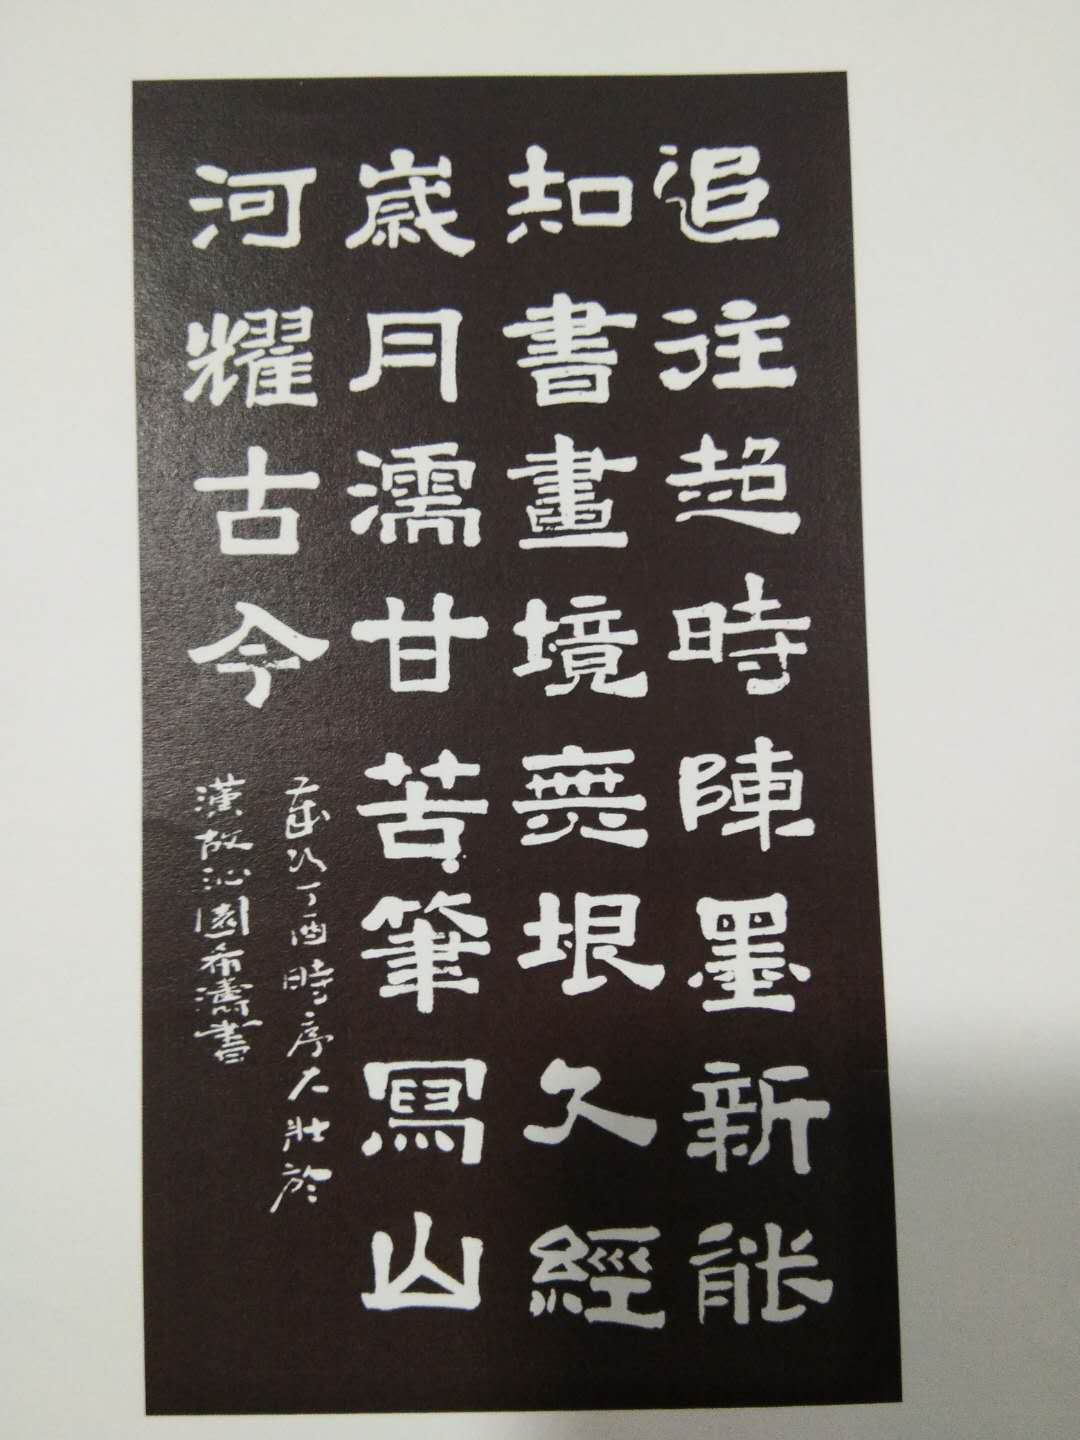 追往超時陳墨新能
知書畫境無垠久經
歲月濡甘苦筆寫山
河耀古今
歲次丁酉時序大壯於
漢故沁園希濤書